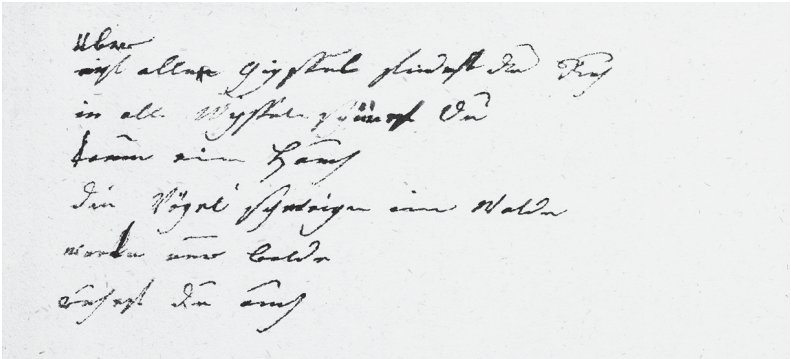 über
allen Gipfel findest du Ruh
in all Wipfel spürest Du
kaum ein Hauch
die Vögel schweigen im Walde
warte nur balde
ruhest du auch